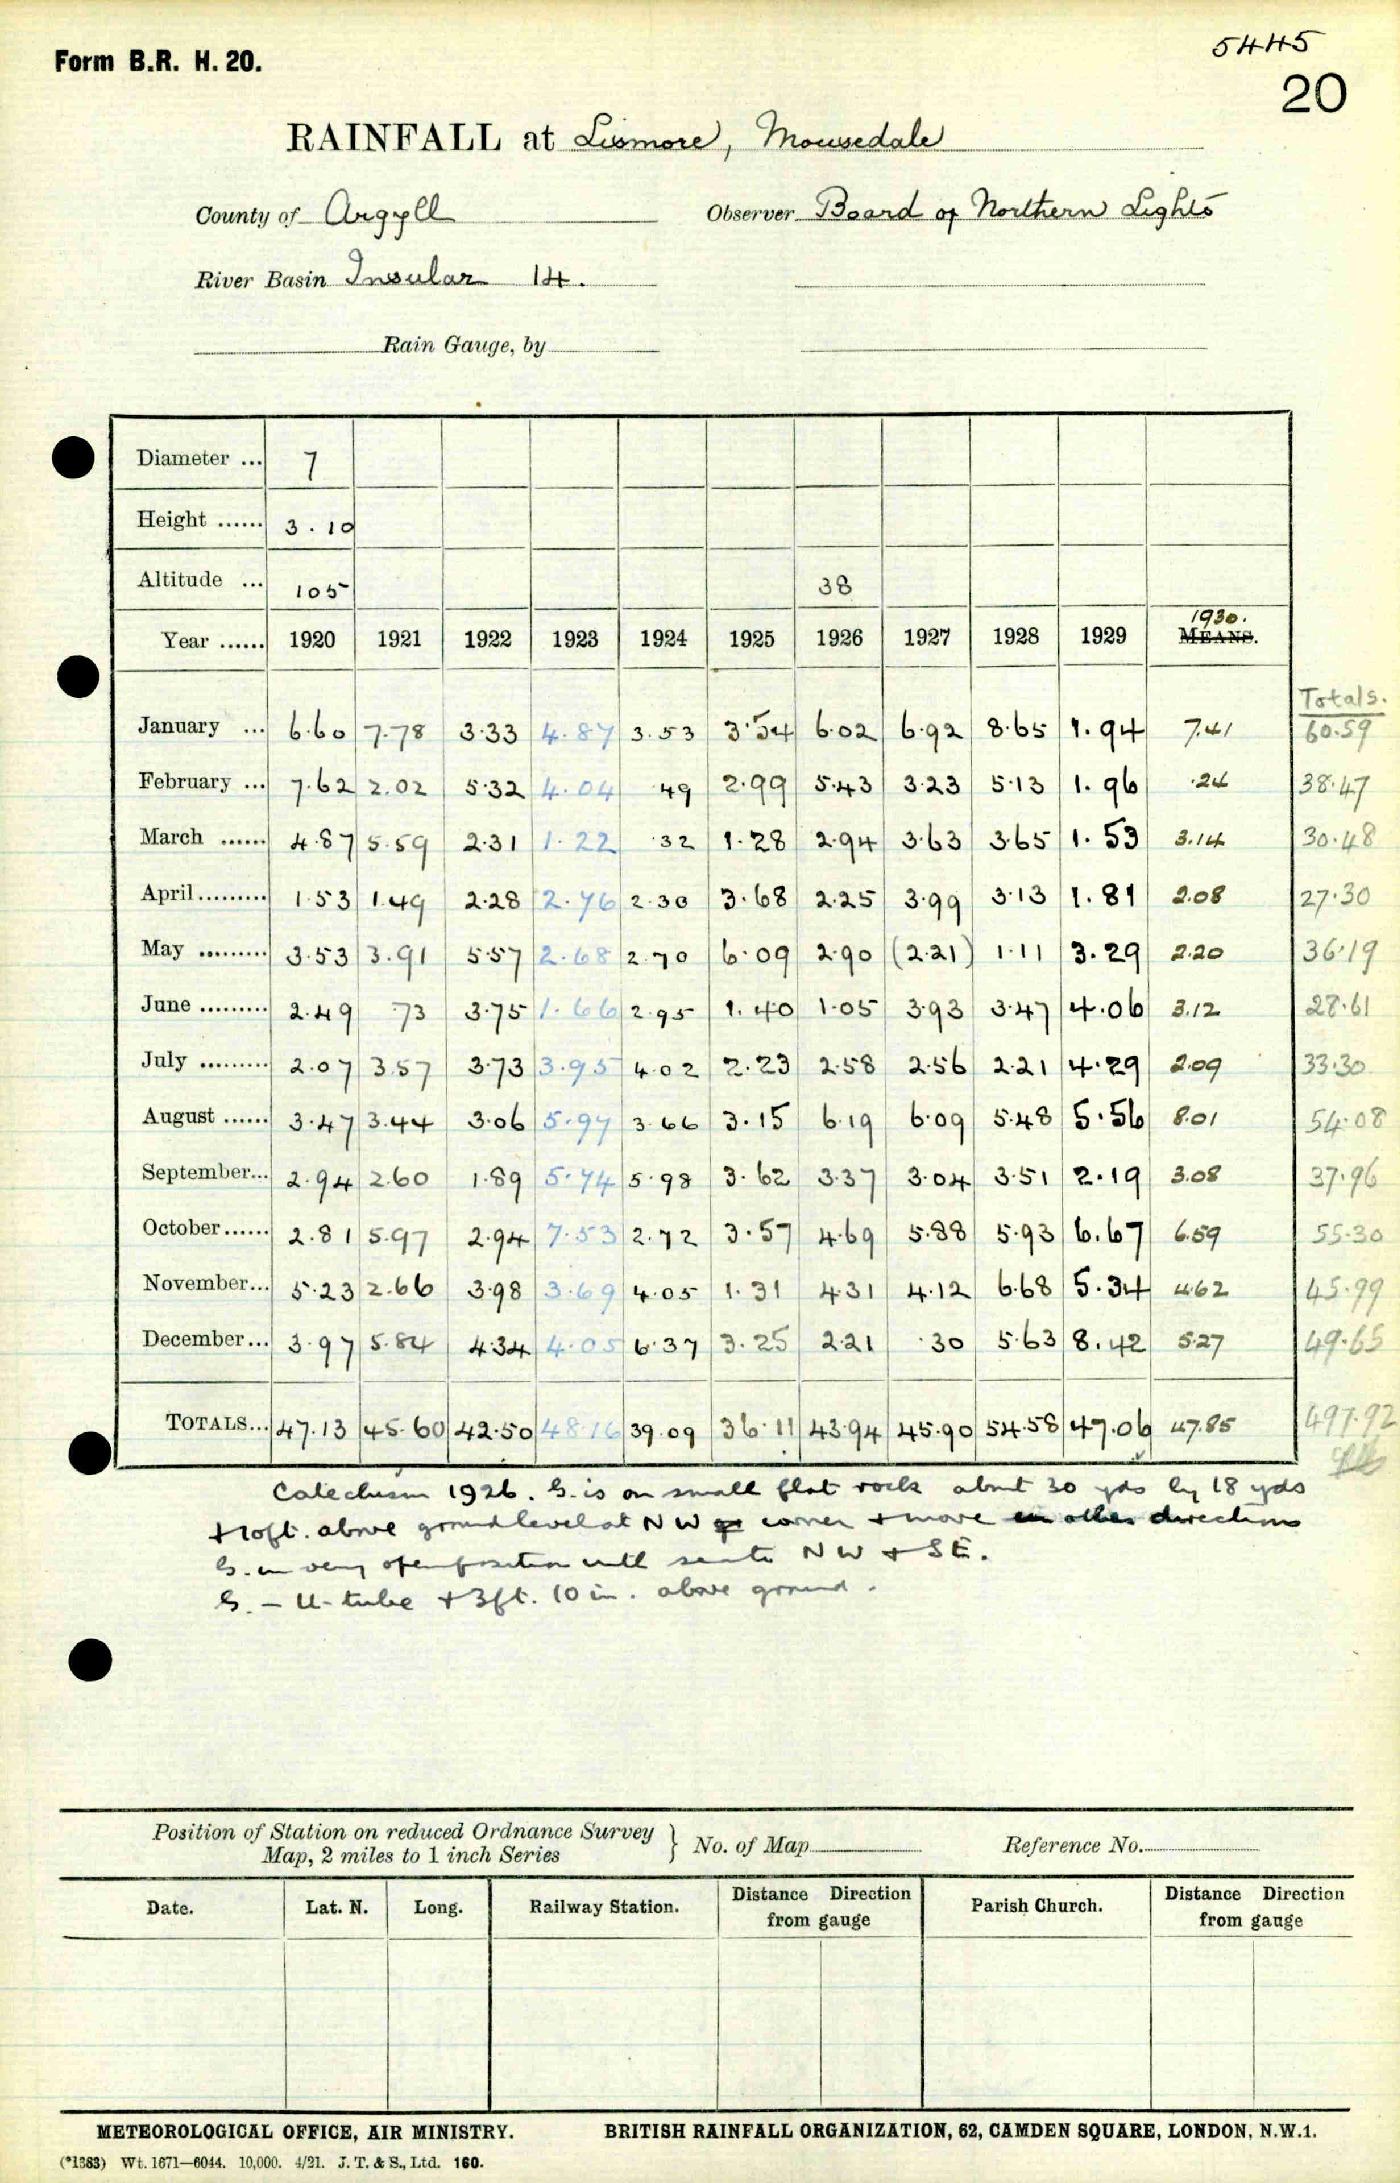 Form B.R. H. 20.
5445
20
RAINFALL at Lismore, Mousedale
County of Argyll Observer Board of Northern Lights
River Basin Insular 14.
Rain Gauge, by
Diameter ... 7
Height ...... 3.10
Altitude ... 105 38
1930.
Year ...... 1920 1921 1922 1923 1924 1925 1926 1927 1928 1929 MEANS.
Totals.
January ... 6.60 7.78 3.33 4.87 3.53 3.54 6.02 6.92 8.65 1.94 7.41 60.59
February ... 7.62 2.02 5.32 4.04 .49 2.99 5.43 3.23 5.13 1.96 .24 38.47
March ...... 4.87 5.59 2.31 1.22 .32 1.28 2.94 3.63 3.65 1.53 3.14 30.48
April ......... 1.53 1.49 2.28 2.76 2.30 3.68 2.25 3.99 3.13 1.81 2.08 27.30
May ......... 3.53 3.91 5.57 2.68 2.70 6.09 2.90 (2.21) 1.11 3.29 2.20 36.19
June ......... 2.49 .73 3.75 1.66 2.95 1.40 1.05 3.93 3.47 4.06 3.12 28.61
July ......... 2.07 3.57 3.73 3.95 4.02 2.23 2.58 2.56 2.21 4.29 2.09 33.30
August ...... 3.47 3.44 3.06 5.97 3.66 3.15 6.19 6.09 5.48 5.56 8.01 54.08
September... 2.94 2.60 1.89 5.74 5.98 3.62 3.37 3.04 3.51 2.19 3.08 37.96
October...... 2.81 5.97 2.94 7.53 2.72 3.57 4.69 5.88 5.93 6.67 6.59 55.30
November... 5.23 2.66 3.98 3.69 4.05 1.31 4.31 4.12 6.68 5.34 4.62 45.99
December... 3.97 5.84 4.34 4.05 6.37 3.25 2.21 .30 5.63 8.42 5.27 49.65
TOTALS... 47.13 45.60 42.50 48.16 39.09 36.11 43.94 45.90 54.58 47.06 47.85 497.92
Catechism 1926. G. is on small flat rock about 30 yds by 18 yds
+ 10ft. above ground level at NW corner + more in other directions
G. in very open position until seats NW + SE.
G. - U-tube + 3ft. 10 in. above ground.
Position of Station on reduced Ordnance Survey
Map, 2 miles to 1 inch Series } No. of Map Reference No.
Date. Lat. N. Long. Railway Station. Distance Direction from gauge Parish Church. Distance Direction from gauge
METEOROLOGICAL OFFICE, AIR MINISTRY. BRITISH RAINFALL ORGANIZATION, 62, CAMDEN SQUARE, LONDON, N.W.1.
(*1383) Wt. 1671—6044. 10,000. 4/21. J. T. & S., Ltd. 160.